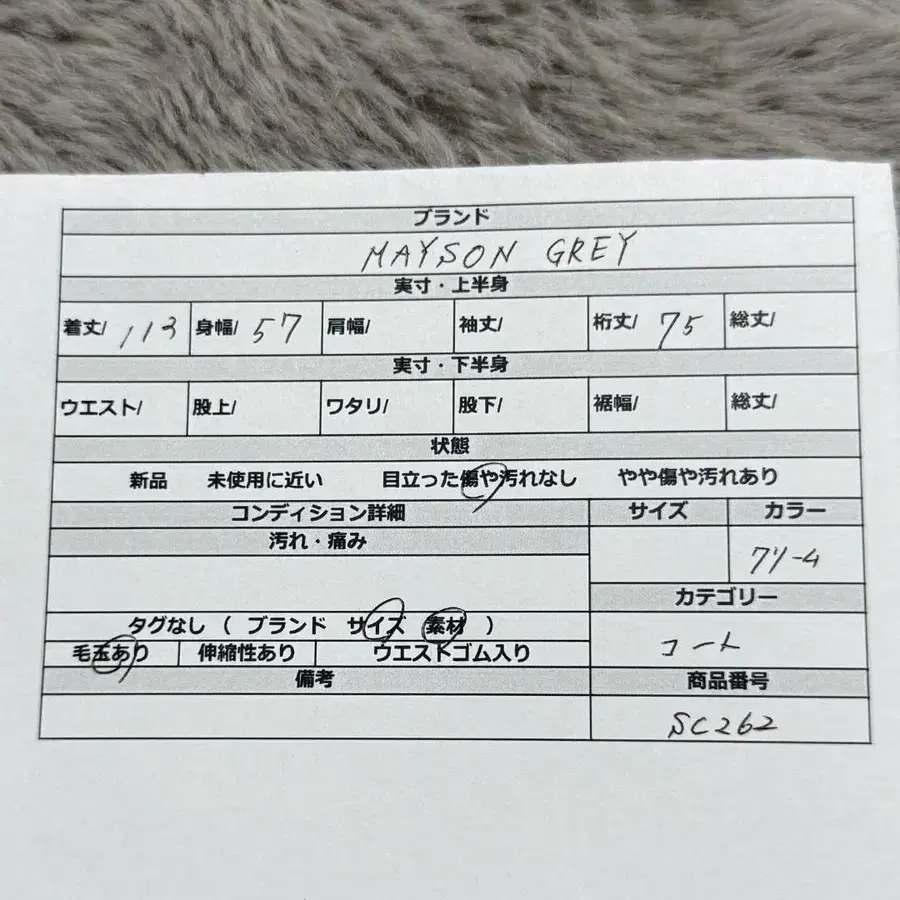 ブランド
MAYSON GREY
実寸・上半身
着丈/ 113 身幅/ 57 肩幅/ 袖丈/ 裄丈/ 75 総丈/
実寸・下半身
ウエスト/ 股上/ ワタリ/ 股下/ 裾幅/ 総丈/
状態
新品 未使用に近い 目立った傷や汚れなし やや傷や汚れあり
コンディション詳細 サイズ カラー
汚れ・痛み
クリーム
カテゴリー
タグなし ( ブランド サイズ 素材 )
コート
毛玉あり 伸縮性あり ウエストゴム入り
備考 商品番号
SC262